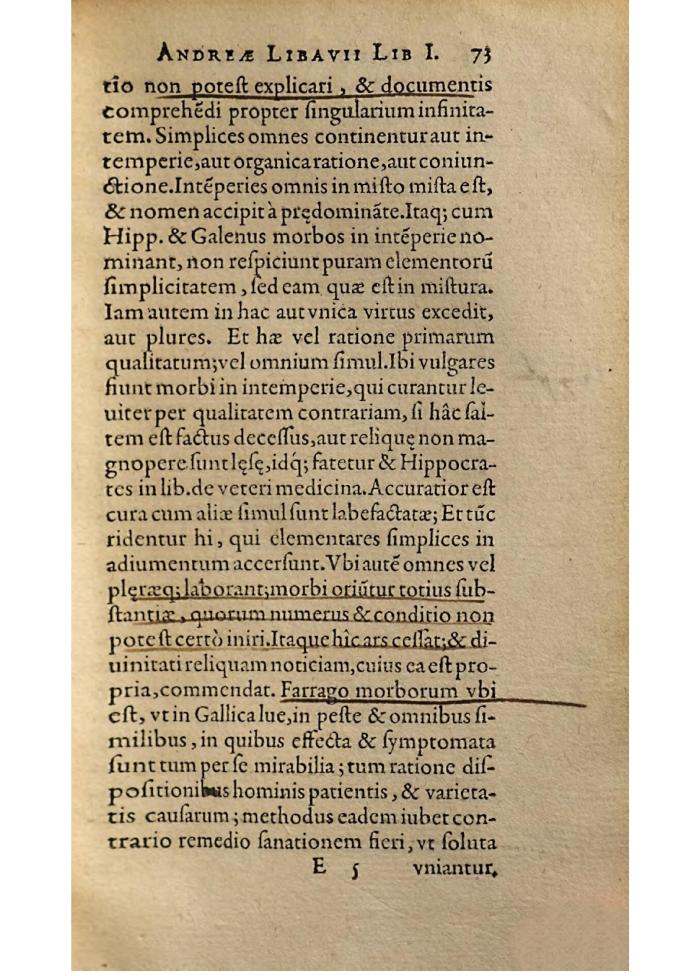 ANDREÆ LIBAVII LIB I. 73
tio non poteſt explicari, & documentis
comprehẽdi propter ſingularium infinita-
tem. Simplices omnes continentur aut in-
temperie, aut organica ratione, aut coniun-
ctione. Intẽperies omnis in miſto miſta eſt,
& nomen accipit à prędominãte. Itaq; cum
Hipp. & Galenus morbos in intẽperie no-
minant, non reſpiciunt puram elementorũ
ſimplicitatem, ſed eam quæ eſt in miſtura.
Iam autem in hac aut vnica virtus excedit,
aut plures. Et hæ vel ratione primarum
qualitatum; vel omnium ſimul. Ibi vulgares
fiunt morbi in intemperie, qui curantur le-
uiter per qualitatem contrariam, ſi hâc ſal-
tem eſt factus deceſſus, aut reliquę non ma-
gnopere ſunt lęſę, idq́; fatetur & Hippocra-
tes in lib. de veteri medicina. Accuratior eſt
cura cum aliæ ſimul ſunt labefactatæ; Et tũc
ridentur hi, qui elementares ſimplices in
adiumentum accerſunt. Vbi autẽ omnes vel
plęræq; laborant; morbi oriũtur totius ſub-
ſtantiæ, quorum numerus & conditio non
poteſt certò iniri. Itaque hîc ars ceſſat; & di-
uinitati reliquam noticiam, cuius ea eſt pro-
pria, commendat. Farrago morborum vbi
eſt, vt in Gallica lue, in peſte & omnibus ſi-
milibus, in quibus effecta & ſymptomata
ſunt tum per ſe mirabilia; tum ratione diſ-
poſitionibus hominis patientis, & varieta-
tis cauſarum; methodus eadem iubet con-
trario remedio ſanationem fieri, vt ſoluta
E 5 vniantur,